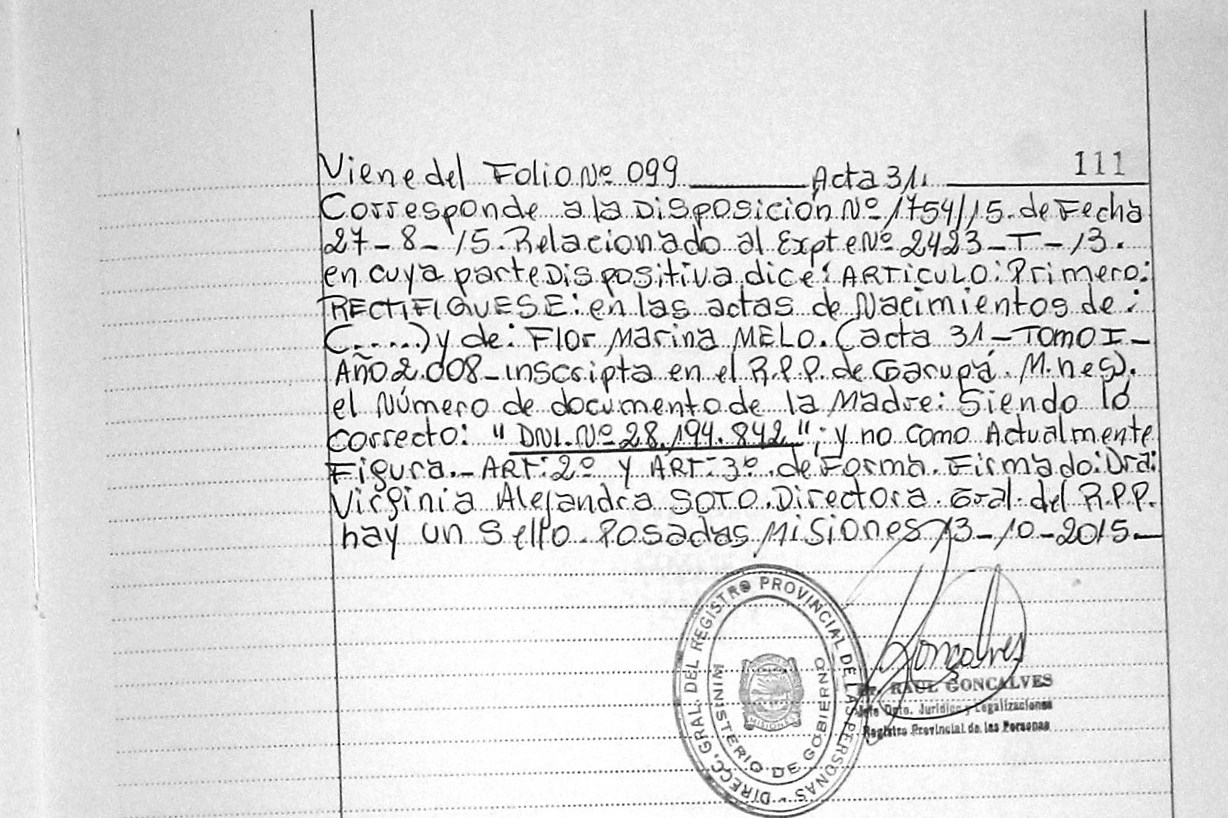 Viene del Folio Nº 099 ______ Acta 31. ______ 111
Corresponde a la Disposición Nº 1754/15. de Fecha
27-8-15. Relacionado al Expte Nº 2423-T-13.
en cuya parte Dispositiva dice: ARTICULO: Primero:
RECTIFIQUESE: en las actas de Nacimientos de:
C.....) y de: Flor Marina MELO. (acta 31-TOMO I-
Año 2.008-inscripta en el R.P.P. de Garupá. M.nes).
el Número de documento de la Madre: Siendo lo
correcto: "DNI. Nº 28.194.842"; y no como Actualmente
Figura.- ART: 2º y ART: 3º. de Forma. Firmado: Dra:
Virginia Alejandra SOTO. Directora. Gral. del R.P.P.
hay un Sello. Posadas Misiones 13-10-2015.-
DIRECC. GRAL. DEL REGISTRO PROVINCIAL DE LAS PERSONAS
MINISTERIO DE GOBIERNO
MISIONES
Goncalves
Dr. RAUL GONCALVES
Jefe Dpto. Jurídico y Legalizaciones
Registro Provincial de las Personas